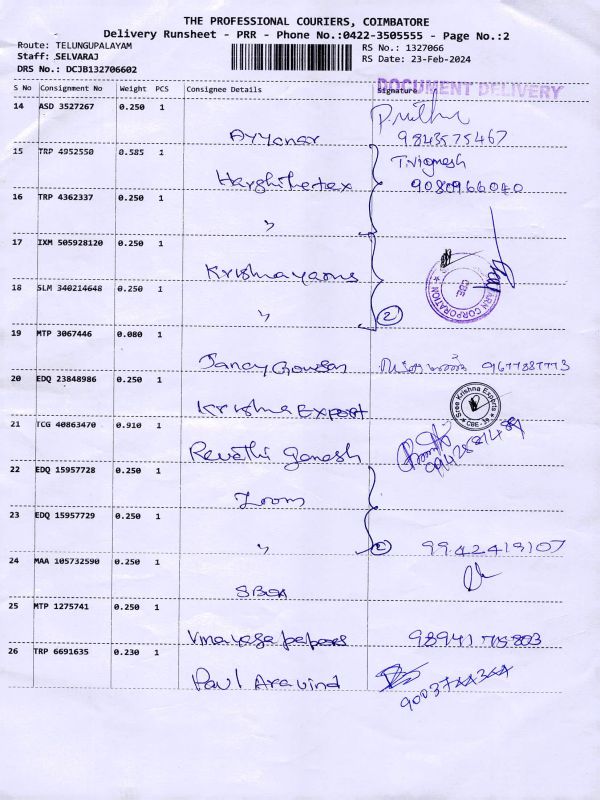 THE PROFESSIONAL COURIERS, COIMBATORE
Delivery Runsheet - PRR - Phone No.:0422-3505555 - Page No.:2
Route: TELUNGUPALAYAM
Staff: SELVARAJ
DRS No.: DCJB132706602
RS No.: 1327066
RS Date: 23-Feb-2024
DOCUMENT DELIVERY
S No Consignment No Weight PCS Consignee Details Signature
14 ASD 3527267 0.250 1
Ayyanar 9843575467
15 TRP 4952550 0.585 1 T.Vignesh
9080966040
16 TRP 4362337 0.250 1
"
17 IXM 505928120 0.250 1
Krishna yarns
18 SLM 340214648 0.250 1
" 2
YARN CORPORATION
CBE
19 MTP 3067446 0.080 1
9677387773
20 EDQ 23848986 0.250 1
Krishna Export
Sree Krishna Exports
CBE
21 TCG 40863470 0.910 1
Revathi ganesh
22 EDQ 15957728 0.250 1
Zoom
23 EDQ 15957729 0.250 1
" 2 9942419107
24 MAA 105732590 0.250 1
25 MTP 1275741 0.250 1
Vinayaga papers
26 TRP 6691635 0.230 1
Paul Aravind